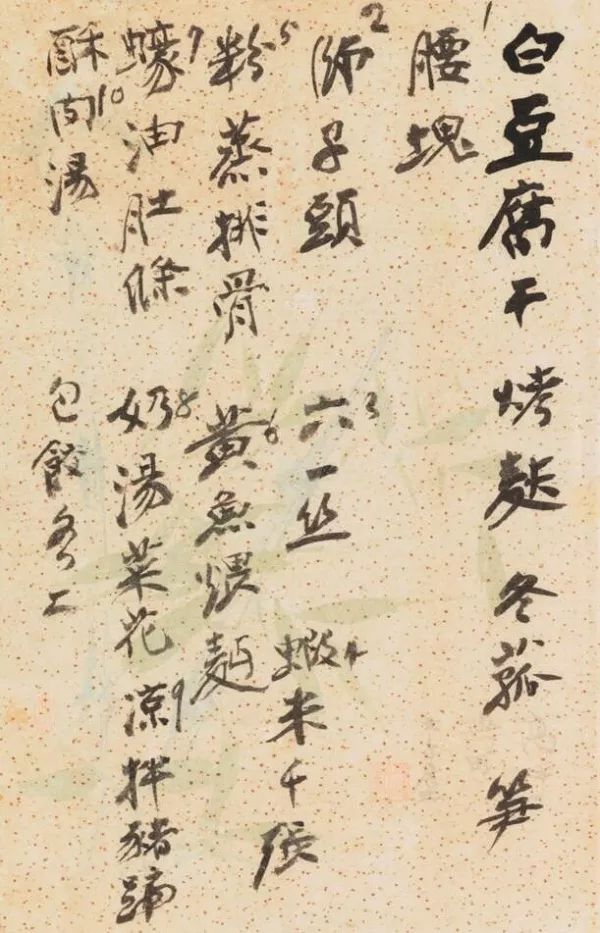 白豆腐干 烤麩 冬菰 笋
腰塊1
师子頭2 六一丝3 蝦米千張4
粉蒸排骨5 黃魚煨麵6
蠔油肚條7 奶湯菜花8 凉拌豬蹄9
酥肉湯10 包餃各二